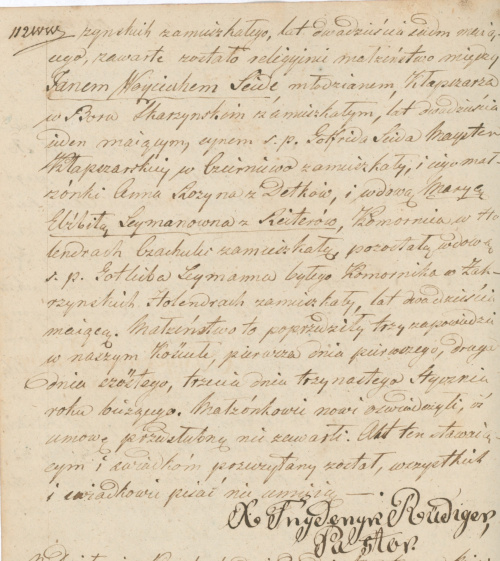 rzynskich zamieszkałego, lat dwadziescia siedm maią,
cego, zawarte zostało religijne małżeństwo między
Janem Woyciechem Seide młodzianem, Kłapczarza
w Boru Skarzynskim zamieszkałym, lat dwadziescia
ieden maiącym, synem s. p. Gotfrida Seida Mayster
Kłapczarskiey w Czerniewo zamieszkały, i iego mał,
żonki Anna Rozyna z Detków, i wdową Maryą
Elżbitą Leymanowną z Reiterów, Komornica w Ho,
lendrach Czachulec zamieszkałą pozostałą wdową
s. p. Gotliba Leymanna byłego Komornika w Zak,
rzynskich Holendrach zamieszkały, lat dwadzieści
maiącą. Małżeństwo to poprzedziły trzy zapowiedzi
w naszym Kościele, pierwsza dnia pierwszego, druga
dnia szóstego, trzecia dnia trzynastego Stycznia
roku bieżącego. Małżonkowie nowi oswiadczyli, iż
umowę przedslubną nie zawarli. Akt ten stawaią,
cym i swiadkom przeczytany został, wszystkich
i swiadkowie pisać nie umieią —
X Frydenyk Rüdiger,
Pastor.